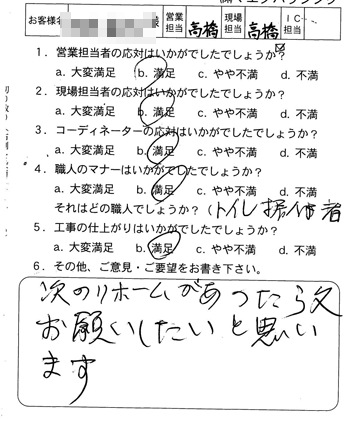 お客様名 様 営業担当 高橋 現場担当 高橋 IC担当
1．営業担当者の応対はいかがでしたでしょうか？
a. 大変満足 b. 満足 c. やや不満 d. 不満
2．現場担当者の応対はいかがでしたでしょうか？
a. 大変満足 b. 満足 c. やや不満 d. 不満
3．コーディネーターの応対はいかがでしたでしょうか？
a. 大変満足 b. 満足 c. やや不満 d. 不満
4．職人のマナーはいかがでしたでしょうか？
a. 大変満足 b. 満足 c. やや不満 d. 不満
それはどの職人でしょうか？（トイレ
5．工事の仕上がりはいかがでしたでしょうか？
a. 大変満足 b. 満足 c. やや不満 d. 不満
6．その他、ご意見・ご要望をお書き下さい。
次のリホームがあったら又
お願いしたいと思い
ます